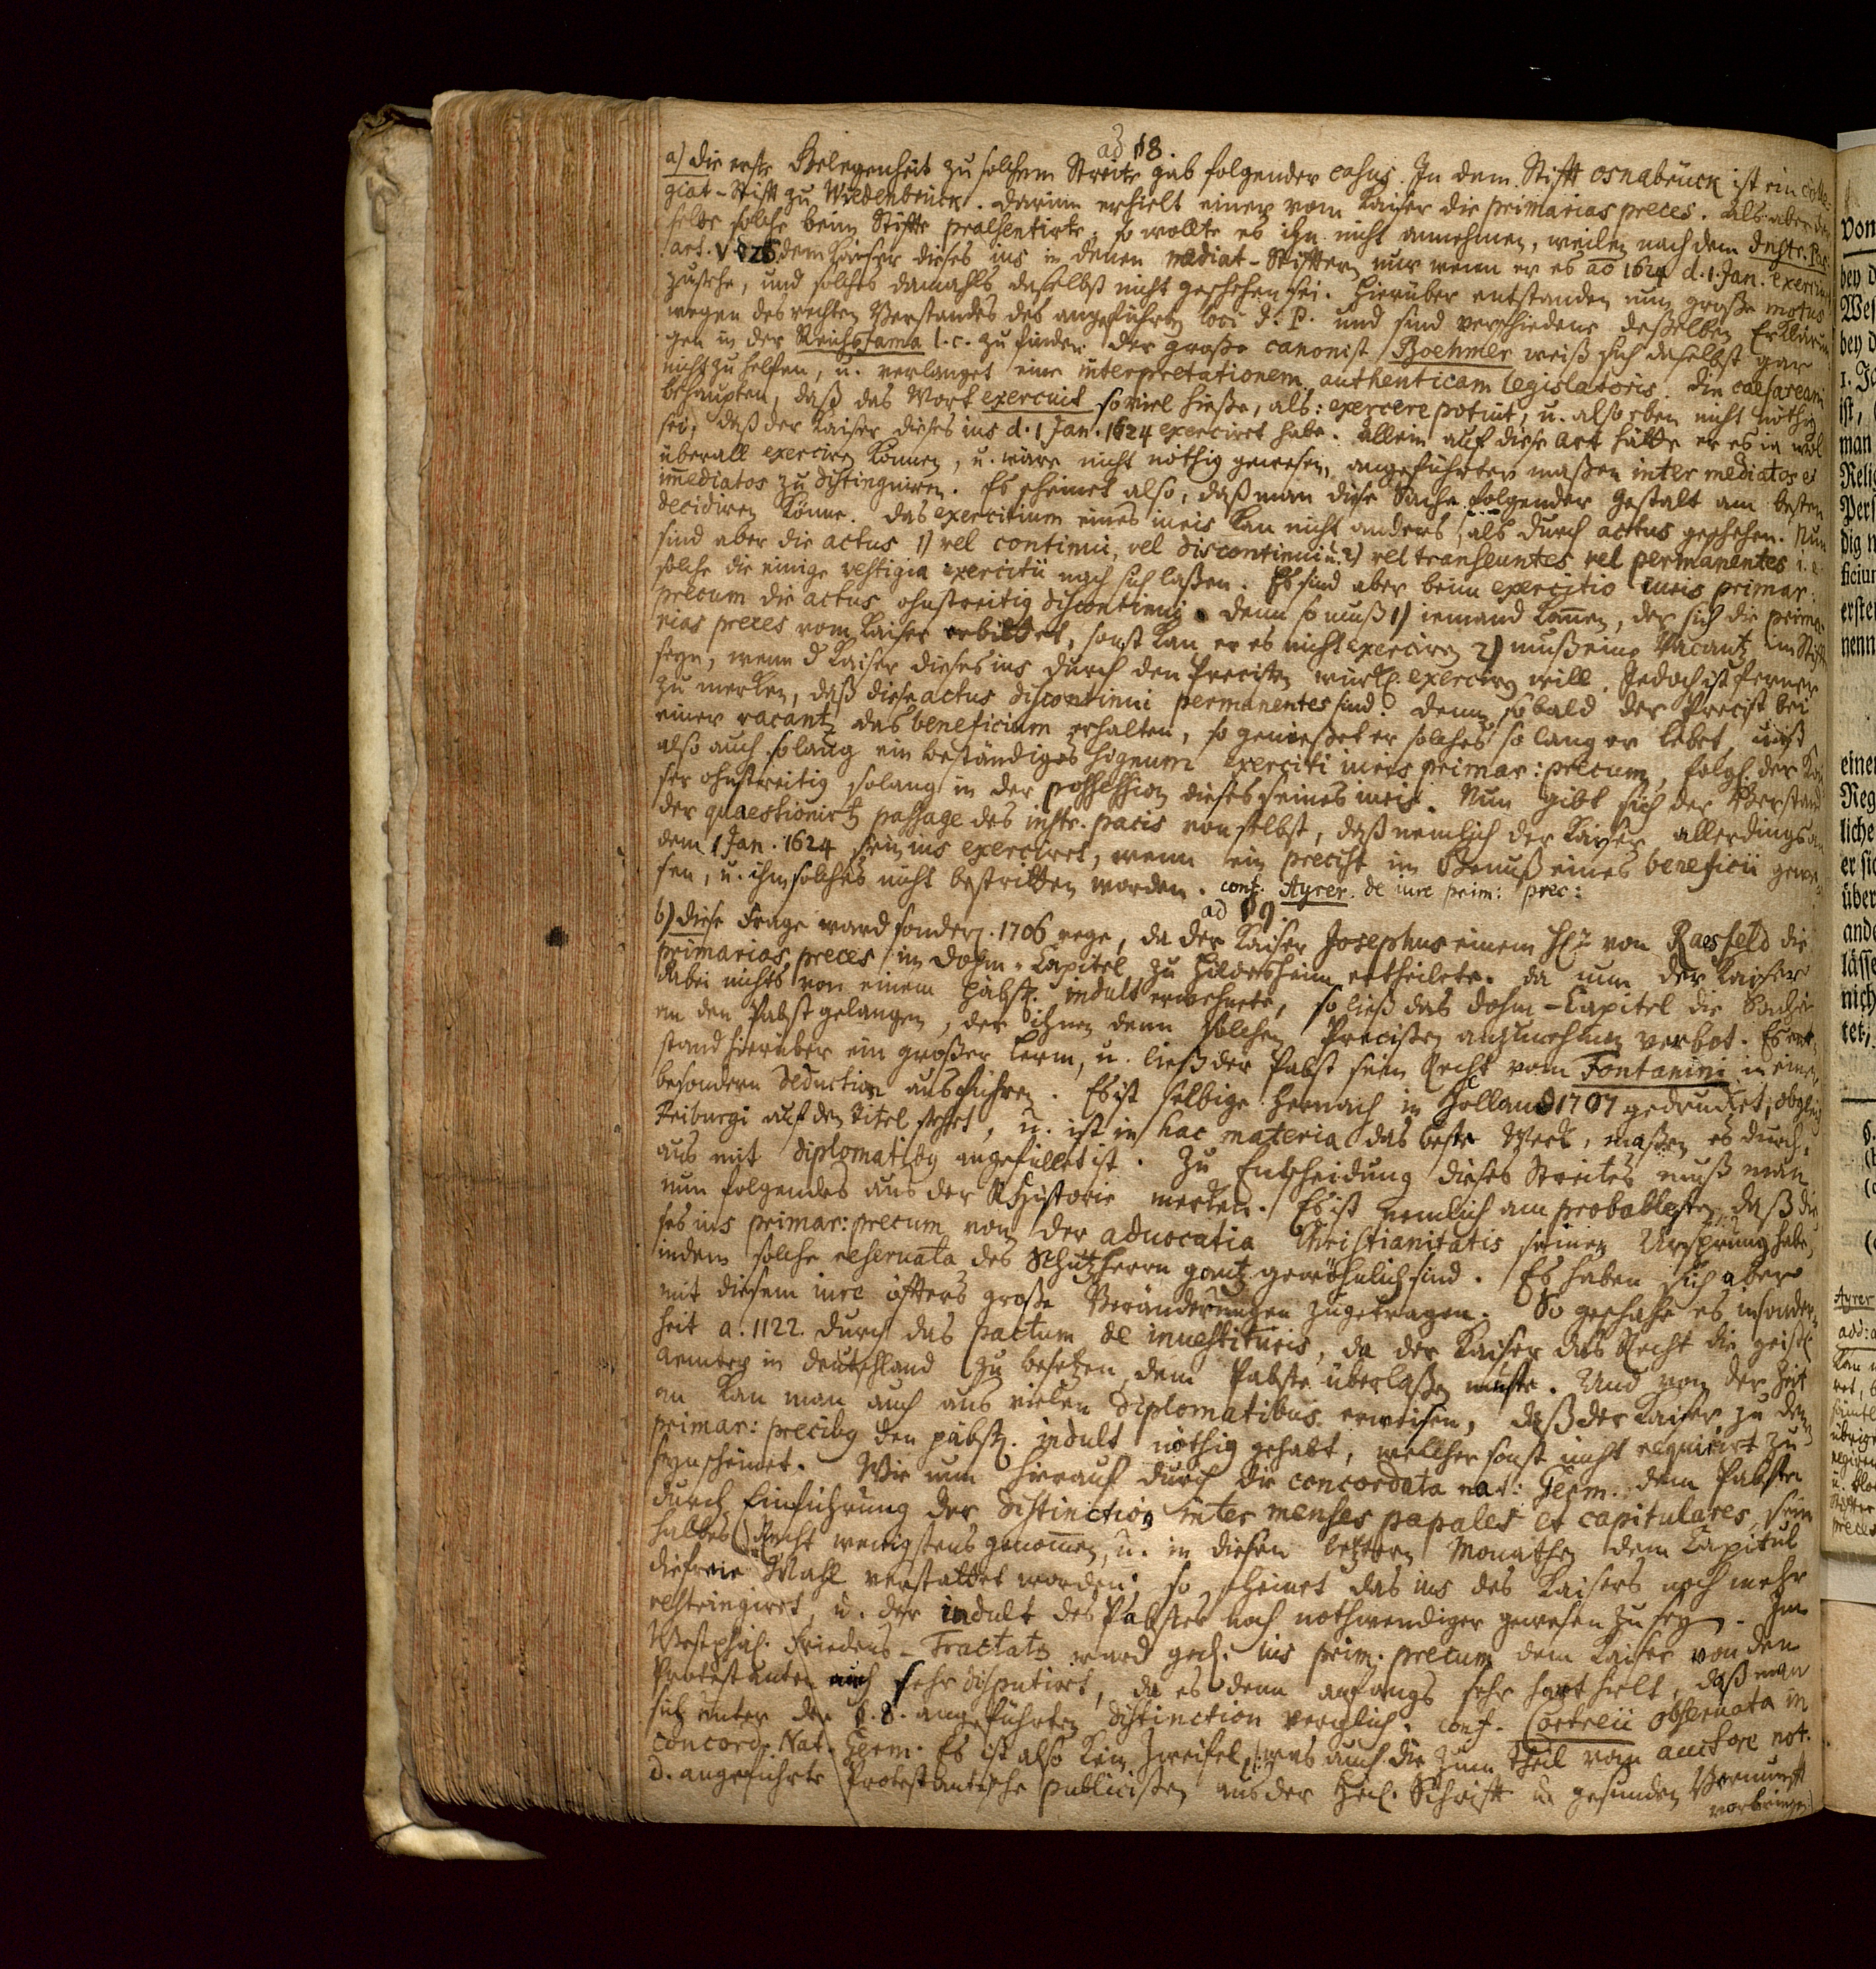 ad § 8.
a) die erste Gelegenheit zu solchem Streite gab folgender casus. In dem Stifft Osnabruck ist ein Colle-
giat-Stifft zu Wiedenbruck. Darinn erhielt einer vom Kaiser die primarias preces. Als aber der-
selbe solche beim Stiffte praesentirte, so wollte es ihn nicht annehmen, weilen nach dem Instr. Pac.
art. V § 26 dem Kaiser dieses ius in denen mediat-Stifftern nur wenn er es ao 1624 d. 1. Jan. exercirt
zustehe, und solches damahls daselbst nicht geschehen sei. Hierüber entstanden nun große motus
wegen des rechten Verstandes des angeführten loci I. P. und sind verschiedene desselben Erklärun-
gen in der Reichsfama l. c. zu finden. Der große canonist Boehmer weiß sich daselbst gar
nicht zu helfen, u. verlanget eine interpretationem authenticam legislatoris. Die caesareani
behaupten, daß das Wort exercuit so viel hieße, als: exercere potuit, u. also eben nicht nöthig
sei, daß der Kaiser dieses ius d. 1 Jan. 1624 exerciret habe. Allein auf diese Art hätte er es ja wol
überall exerciren können, u. wäre nicht nöthig gewesen, angeführter maßen inter mediatos et
immediatos zu distinguiren. Es scheinet also, daß man diese Sache folgender gestalt am besten
decidiren könne. Das exercitium eines iuris kan nicht anders, als durch actus geschehen. Nun
sind aber die actus 1) vel continui, vel discontinui u. 2) vel transeuntes vel permanentes i. e.
solche die einige vestigia exercitii nach sich laßen. Es sind aber beim exercitio iuris primar:
precum die actus ohnstreitig discontinui. Denn so muß 1) iemand kommen, der sich die prima-
rias preces vom Kaiser erbittet, sonst kan er es nicht exerciren 2) muß eine Vacantz im Stifft
seyn, wenn d Kaiser dieses ius durch den Precisten würkl. exerciren will. Jedoch ist ferner
zu merken, daß diese actus discontinui permanentes sind. Denn sobald der Precist bei
einer vacantz das beneficium erhalten, so genießet er solches so lang er lebet, u. ist
also auch so lang ein beständiges signum exerciti iuris primar: precum, folgl. der Kai-
ser ohnstreitig solang in der possession dieses seines iuris. Nun gibt sich der Verstand
der quaestionirten passage des instr. pacis von selbst, daß nemlich der Kaiser allerdings an
dem 1 Jan. 1624 sein ius exerciret, wenn ein precist im Genuß eines beneficii gewe-
sen, u. ihm solches nicht bestritten worden. conf. Ayrer. de iure prim: prec:
ad § 9.
b) Diese Frage ward sonderl. 1706 rege, da der Kaiser Josephus einem H. von Raesfeld die
primarias preces im Dohm-Capitel zu Hildesheim ertheilete. Da nun der Kaiser
dabei nichts von einem päbstl. indult erwehnete, so ließ das Dohm-Capitel die Sache
an den Pabst gelangen, der ihnen denn solchen Precisten anzunehmen verbot. Es ent-
stand hierüber ein großer Lerm, u. ließ der Pabst sein Recht vom Fontanini in einer
besondern deduction ausführen. Es ist selbige hernach in Holland 1707 gedrucket, obgleich
Friburgi auf dem Titel stehet, u. ist in hac materia das beste Werk, maßen es durch-
aus mit diplomatibus angefüllet ist. Zu Entscheidung dieses Streites muß man
nun folgendes aus der RHistorie merken. Es ist nemlich am probablesten, daß die-
ses ius primar: precum von der advocatia Christianitatis seinen Ursprung habe,
indem solche reservata des Schutzherrn gantz gewöhnlich sind. Es haben sich aber
mit diesem iure öffters große Veränderungen zugetragen. So geschahe es insonder-
heit a. 1122. durch das pactum de investituris, da der Kaiser das Recht die geistl.
Aemter in Deutschland zu besetzen dem Pabste überlaßen muste. Und von der Zeit
an kan man auch aus vielen diplomatibus erweisen, daß der Kaiser zu den
primar: precibus den päbstl. indult nöthig gehabt, welcher sonst nicht requirirt zu
seyn scheinet. Wie nun hierauf durch die concordata nat: Germ. dem Pabste
durch Einführung der distinction inter menses papales et capitulares, sein
halbes Recht wenigstens genommen, u. in diesen letztern Monathen dem Capitul
die freie Wahl verstattet worden; so scheinet das ius des Kaisers noch mehr
restringiret, u. der indult des Pabstes noch nothwendiger gewesen zu seyn. Im
Westphäl. Friedens-Tractats ward ged. ius prim. precum dem Kaiser von den
Protestanten auch sehr disputiret, da es denn anfangs sehr hart hielt, daß man
sich unter der §. 8. angeführten distinction verglich. conf. Cortreii observata in
concord. Nat. Germ. Es ist also kein Zweifel, was auch die zum theil vom auctore not.
d. angeführte Protestantische publicisten aus der Heil. Schrifft u. gesunden Vernunft
vorbringen